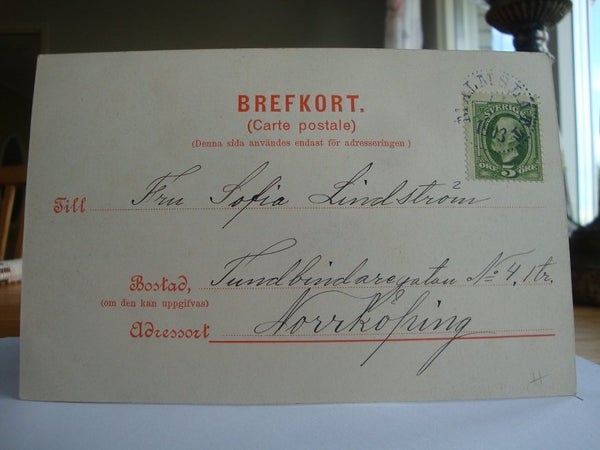 BREFKORT.
(Carte postale)
(Denna sida användes endast för adresseringen)
SVERIGE
ÖRE 5 ÖRE
Till Fru Sofia Lindström
Bostad, Tunnbindaregatan No 4, 1 tr.
(om den kan uppgifvas)
Adressort Norrköping